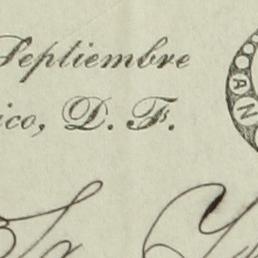 Septiembre
ico, D. F.
AN